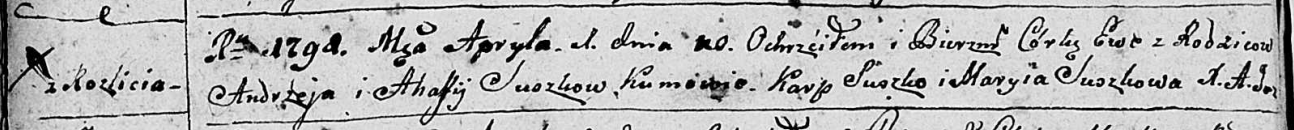 z Rozlicia -
Rn 1798. Msca Apryla. d. dnia 20. Ochrzciłem i Bierzm Córkę Ewe z Rodzicow
Andrzeja i Ahafij Suszkow Kumowie. Karp Suszko i Maryia Suszkowa X. A.